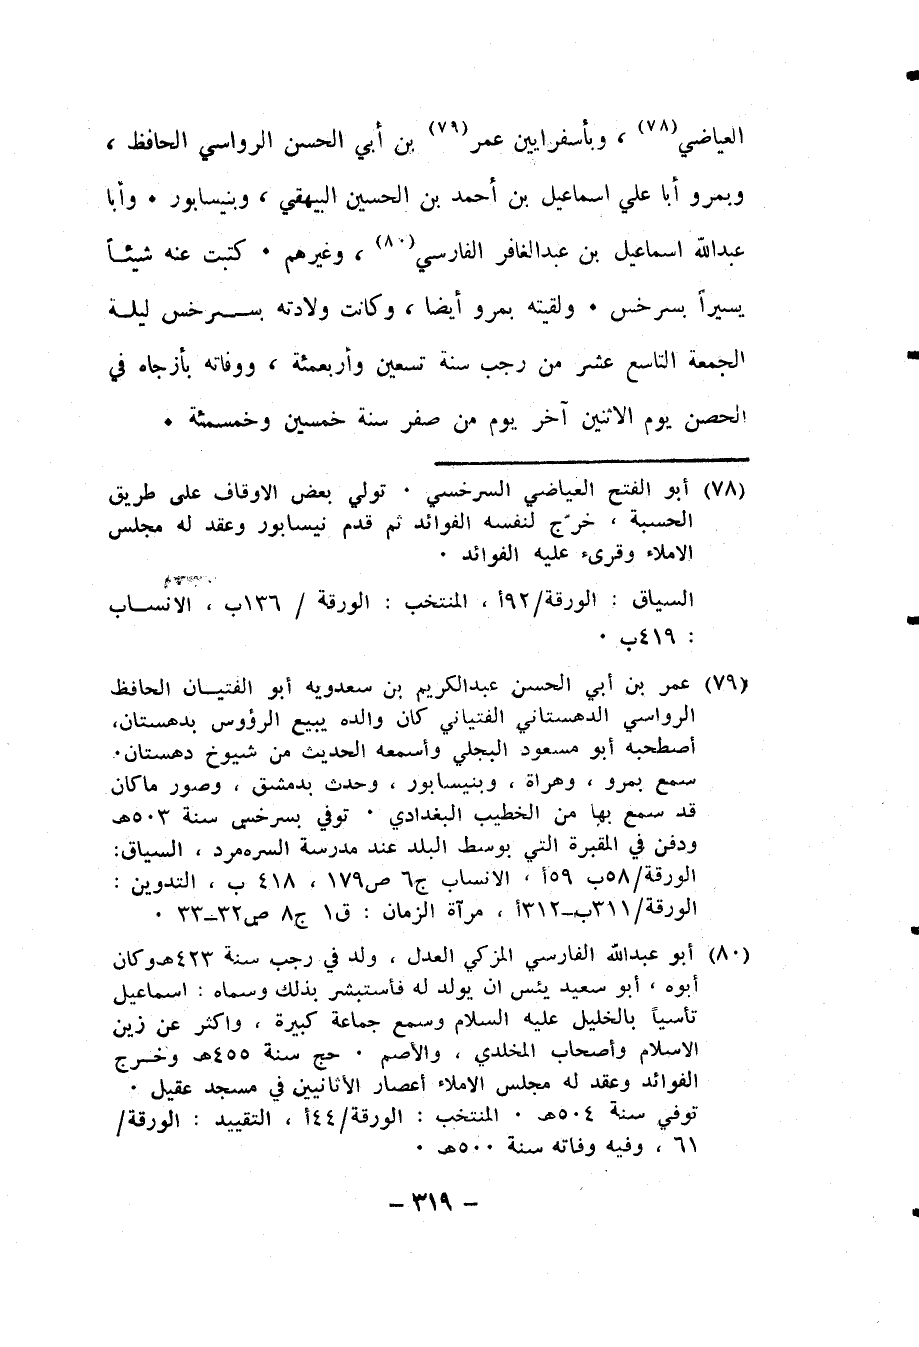 العياضي(٧٨) ، وبأسفرايين عمر(٧٩) بن أبي الحسن الرواسي الحافظ ،
وبمرو أبا علي اسماعيل بن أحمد بن الحسين البيهقي ، وبنيسابور ٠ وأبا
عبدالله اسماعيل بن عبدالغافر الفارسي(٨٠) ، وغيرهم ٠ كتبت عنه شيئـاً
يسيراً بسرخس ٠ ولقيته بمرو أيضا ، وكانت ولادته بســـرخس ليلـة
الجمعة التاسع عشر من رجب سنة تسعين وأربعمئة ، ووفاته بأزجاه في
الحصن يوم الاثنين آخر يوم من صفر سنة خمسين وخمسمئة ٠
(٧٨) أبو الفتح العياضي السرخسي ٠ تولي بعض الاوقاف على طريق
الحسبة ، خرّج لنفسه الفوائد ثم قدم نيسابور وعقد له مجلس
الاملاء وقرىء عليه الفوائد ٠
السياق : الورقة/٩٢أ ، المنتخب : الورقة / ١٣٦ب ، الانســاب
: ٤١٩ب ٠
(٧٩) عمر بن أبي الحسن عبدالكريم بن سعدويه أبو الفتيـان الحافظ
الرواسي الدهستاني الفتياني كان والده يبيع الرؤوس بدهستان،
أصطحبه أبو مسعود البجلي وأسمعه الحديث من شيوخ دهستان٠
سمع بمرو ، وهراة ، وبنيسابور ، وحدث بدمشق ، وصور ماكان
قد سمع بها من الخطيب البغدادي ٠ توفي بسرخس سنة ٥٠٣هـ
ودفن في المقبرة التي بوسط البلد عند مدرسة السرهمرد ، السياق:
الورقة/٥٨ب ٥٩أ ، الانساب ج٦ ص١٧٩ ، ٤١٨ ب ، التدوين :
الورقة/٣١١ب_٣١٢أ ، مرآة الزمان : ق١ ج٨ ص٣٢_٣٣ ٠
(٨٠) أبو عبدالله الفارسي المزكي العدل ، ولد في رجب سنة ٤٢٣هـ وكان
أبوه ، أبو سعيد يئس ان يولد له فأستبشر بذلك وسماه : اسماعيل
تأسياً بالخليل عليه السلام وسمع جماعة كبيرة ، واكثر عن زين
الاسلام وأصحاب المخلدي ، والأصم ٠ حج سنة ٤٥٥هـ وخـرج
الفوائد وعقد له مجلس الاملاء أعصار الأثانيين في مسجد عقيل ٠
توفي سنة ٥٠٤هـ ٠ المنتخب : الورقة/٤٤أ ، التقييد : الورقة/
٦١ ، وفيه وفاته سنة ٥٠٠هـ ٠
— ٣١٩ —